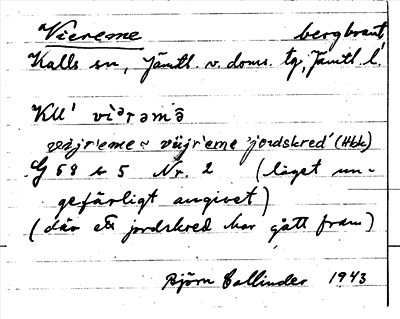 Viereme bergbrant
Kalls sn, Jämtl. v. doms. tg, Jämtl. l.
KU' viərəmē
väjrieme ~ vüjrieme 'jordskred' (Hbk)
G 58 s 5 Nr. 2 (läget un-
gefärligt angivet)
(där ett jordskred har gått fram)
Björn Collinder 1943